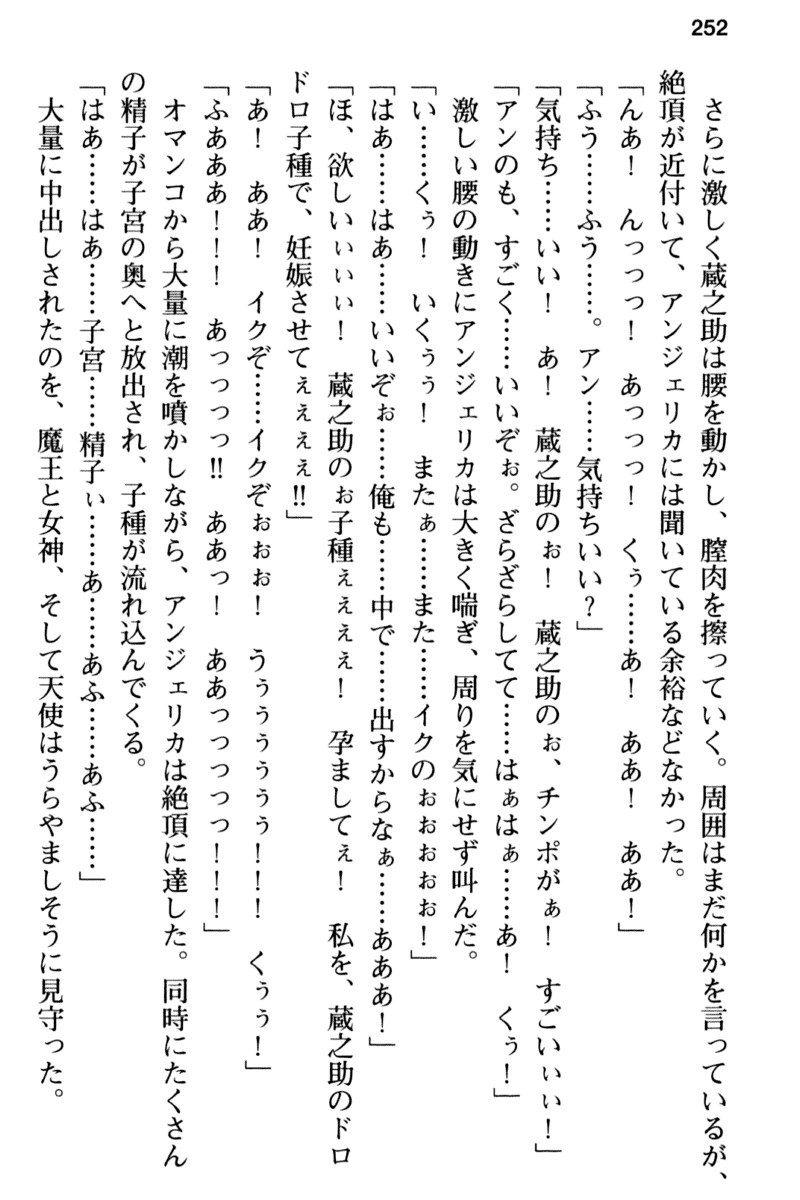 252
さらに激しく蔵之助は腰を動かし、膣肉を擦っていく。周囲はまだ何かを言っているが、
絶頂が近付いて、アンジェリカには聞いている余裕などなかった。
「んぁ！　んっっっ！　あっっっ！　くぅ……あ！　ああ！　ああ！」
「ふう……ふう……。アン……気持ちいい？」
「気持ち……いい！　あ！　蔵之助のぉ！　蔵之助のぉ、チンポがぁ！　すごいぃぃ！」
「アンのも、すごく……いいぞぉ。ざらざらしてて……はぁはぁ……あ！　くぅ！」
激しい腰の動きにアンジェリカは大きく喘ぎ、周りを気にせず叫んだ。
「い……くぅ！　いくぅぅ！　またぁ……また……イクのぉぉぉぉぉ！」
「はあ……はあ……いいぞぉ……俺も……中で……出すからなぁ……あああ！」
「ほ、欲しいぃぃぃ！　蔵之助のぉ子種ぇぇぇぇ！　孕ましてぇ！　私を、蔵之助のドロ
ドロ子種で、妊娠させてぇぇぇぇ!!」
「あ！　ああ！　イクぞ……イクぞぉぉぉ！　うぅぅぅぅぅぅ！！！　くぅぅ！」
「ふあああ！！！　あっっっっ!!　ああっ！　ああっっっっっ！！！」
オマンコから大量に潮を噴かしながら、アンジェリカは絶頂に達した。同時にたくさん
の精子が子宮の奥へと放出され、子種が流れ込んでくる。
「はあ……はあ……子宮……精子ぃ……あ……あふ……あふ……」
大量に中出しされたのを、魔王と女神、そして天使はうらやましそうに見守った。